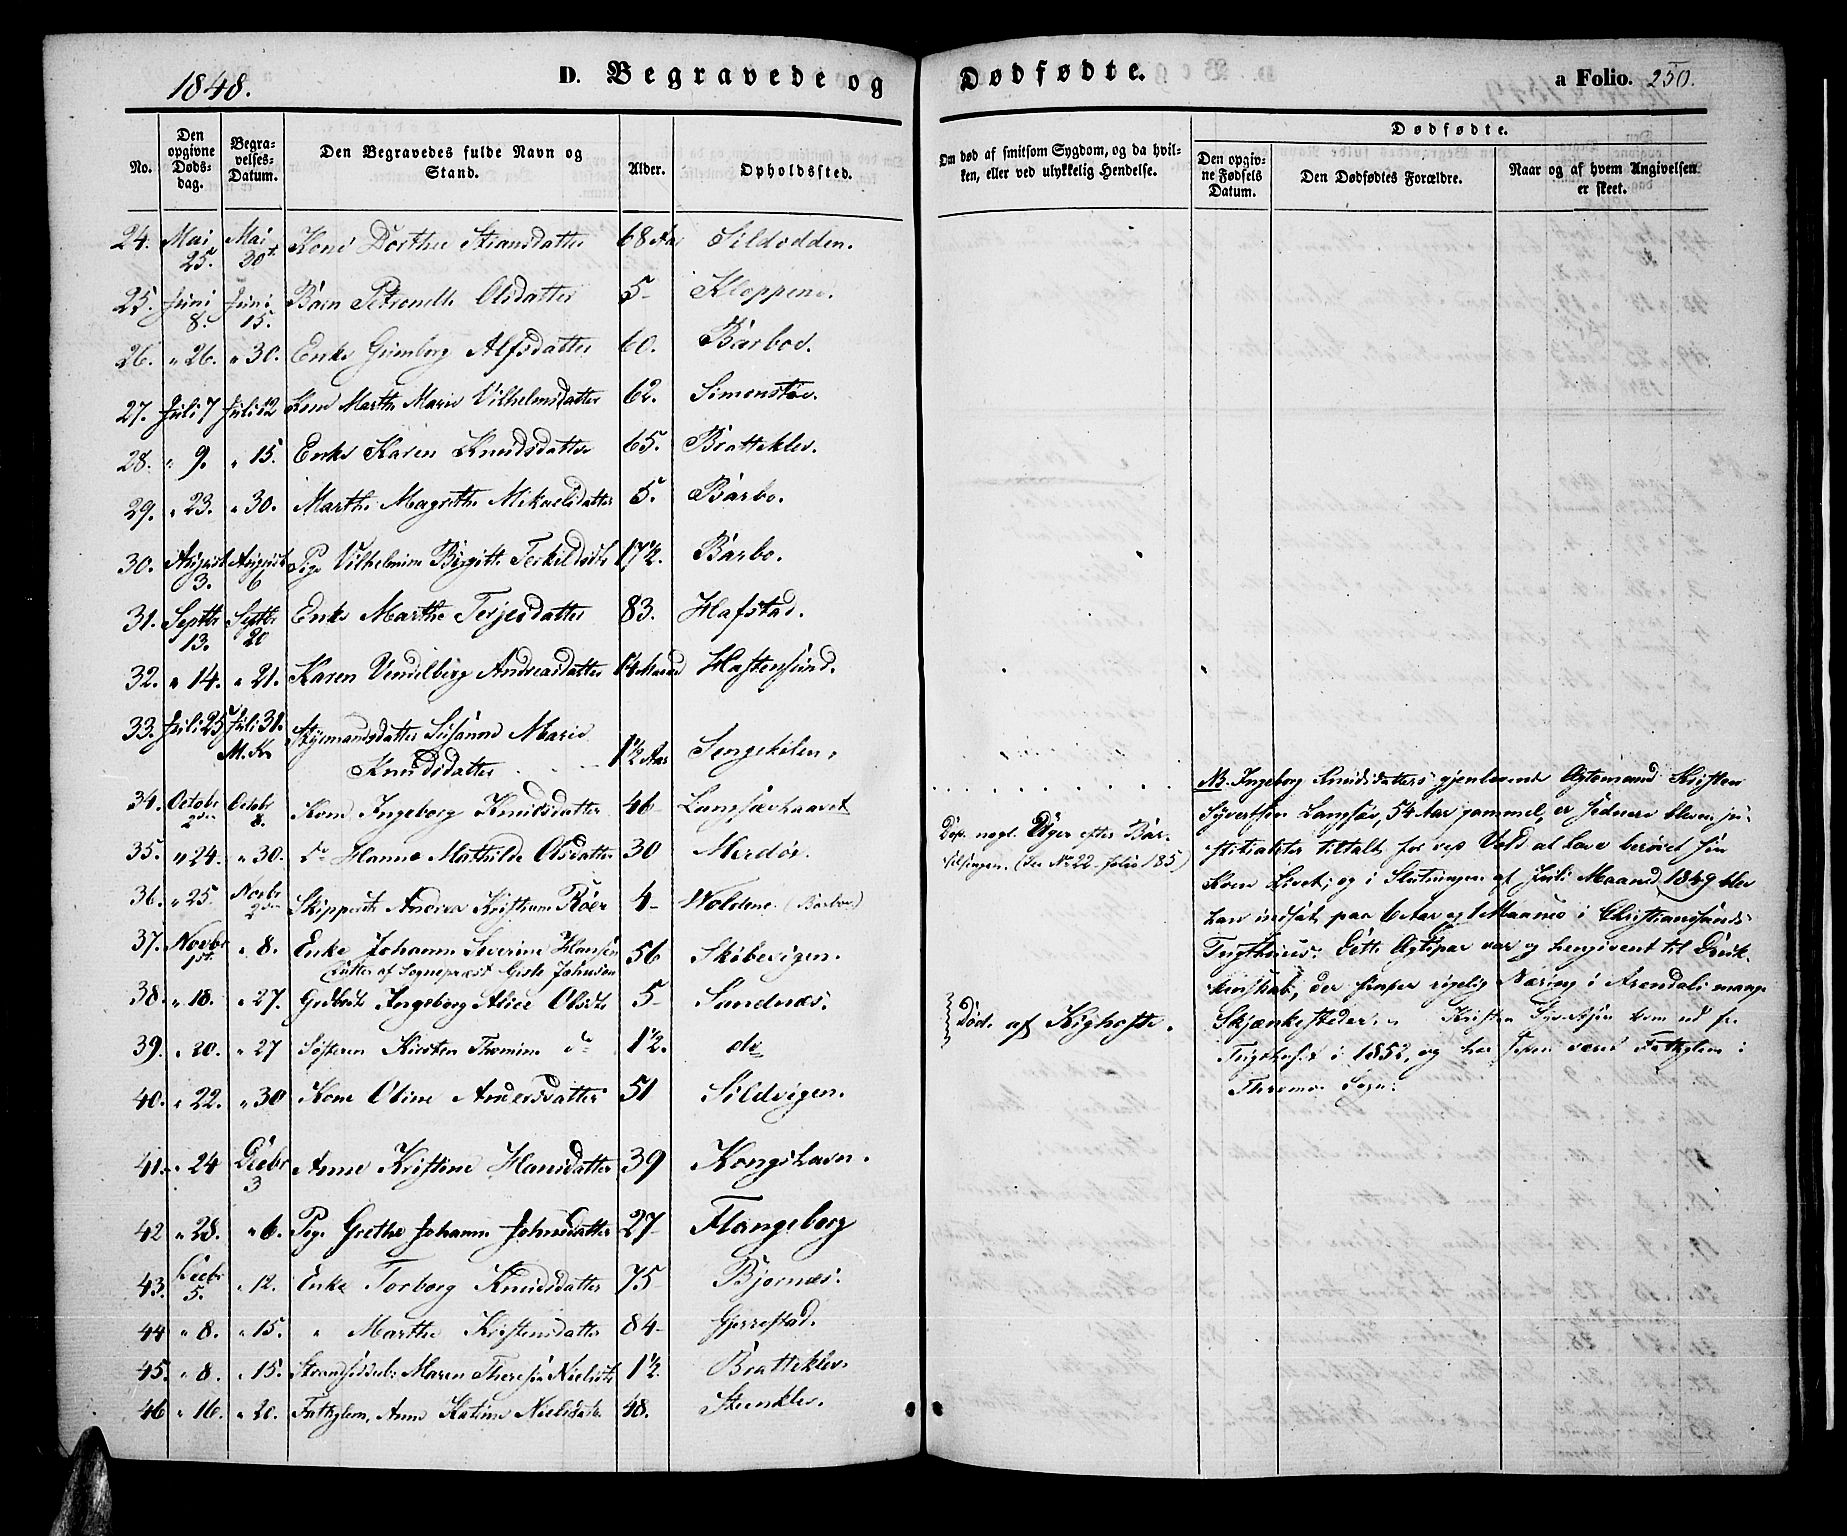 1848.
D. Begravede og Dødfødte.
a Folio. 250.
No.
Den opgivne Døds-dag.
Begra-velses-Datum.
Den Begravedes fulde Navn og Stand.
Alder.
Opholdssted.
Om død af smitsom Sygdom, og da hvil-ken, eller ved ulykkelig Hendelse.
Dødfødte.
Den opgiv-ne Fødsels Datum.
Den Dødfødtes Forældre.
Naar og af hvem Angivelsen er skeet.
24. Mai 25. Mai 30t. Kone Dorthe Stiansdatter 68 Aar Sildodden.
25. Juni 8. Juni 15. Barn Petronelle Olsdatter 5- Kloppene.
26. " 26. " 30. Enke Gunborg Alfsdatter 60. Barboe.
27. Juli 7 Juli 12 Kone Marthe Marie Vilhelmsdatter 62. Simonstøe.
28. " 9. " 15. Enke Karen Knudsdatter 65. Bratteklev.
29. " 23. " 30. Marthe Magrethe Mikaelsdatter 5. Barbo.
30. August 3. August 6 Pige Vilhelmine Birgitte Terkildsdtr 17½. Barbo.
31. Septbr 13. Septbr 20 Enke Marthe Terjesdatter 83. Hafstad.
32. " 14. " 21. Karen Vendelborg Andreasdatter 14 Maaned Haftensund.
33. Juli 25 Juli 31. M.K. Styrmandsdatter Susanne Marie
Knudsdatter 1½ Aar Sengekilen.
34. Octobr 2den Octobr 8. Kone Ingeborg Knudsdatter 46- Langsæehaavet
35. " 24. " 30. do Hanne Mathilde Olsdatter 30 Merdøe.
Død nogle Uger efter Bar-
selsengen. (See No 22 folio 185)
36. " 25. Novbr 2den Skipperdt Andrea Kristiane Röer 4- Woldene (Barboe)
37. Novbr 1st. " 8. Enke Johanne Severine Hansen
Datter af Sognepræst Giste Johnsen 56 Skibevigen.
38. " 18. " 27. Gdbrdt Ingeborg Alice Olsdtr 5- Sandnæs.
39. " 20. " 27 Søsteren Kirsten Thomine do 1½. do
Død af Kighoste.
40. " 22. " 30 Kone Oline Andersdatter 51 Sildvigen.
41. " 24 Decbr 3 Anne Kristine Hansdatter 39 Kongshavn.
42 " 28. " 6. Pige Grethe Johanne Johnsdatter 27 Flangeborg
43. Decbr 5. " 12. Enke Torborg Knudsdatter 75- Bjornæs.
44 " 8. " 15. " Marthe Kristensdatter 84- Gjerrestad.
45. " 8. " 15. Maren Therese Nielsdt 1½. Bratteklev.
46 " 16. " 20. Fattiglem, Anne Katrine Nielsdatr 48. Steenklev.
NB. Ingeborg Knudsdatters gjenlevende Ægtemand Kristen
Syvertsen Langsæe, 54 Aar gammel, er sednere bleven ju-
stitialiter tiltalt for ved Vold at have berøvet sin
Kone Livet; og i Slutningen af Juli Maaned 1849 blev
han indsat paa 6 Aar og 1 Maaned i Christiansands
Tugthuus. Dette Ægtepar var og hengivent til Druk-
kenskab, der finder rigelig Næring i Arendals mange
Skjænkesteder. " Kristen Syvertsen kom ud fra
Tugthuset i 1852, og har siden været Fattiglem i
Thromø Sogn.